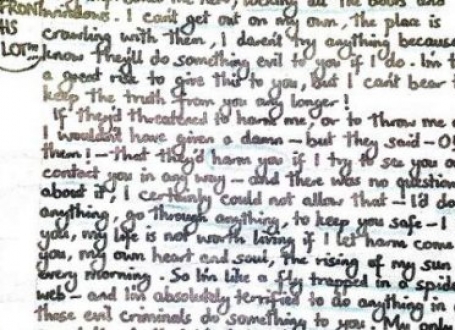 FRONT windows. I can't get out on my own, the place is
HIS crawling with them, I daren't try anything because
LOT™... know they'll do something evil to you if I do. I'm t
a great risk to give this to you, but I can't bear t
keep the truth from you any longer!
If they'd threatened to harm me, or to throw me o
I wouldn't have given a damn – but they said – O!
them! – that they'd harm you if I try to see you o
contact you in any way – and there was no question
about it, I certainly could not allow that – I'd do
anything, go through anything, to keep you safe – I
you, my life is not worth living if I let harm come
you, my own heart and soul, the rising of my sun
every morning. So I'm like a fly trapped in a spide
web – and I'm absolutely terrified to do anything in c
those evil criminals do something to you. My only